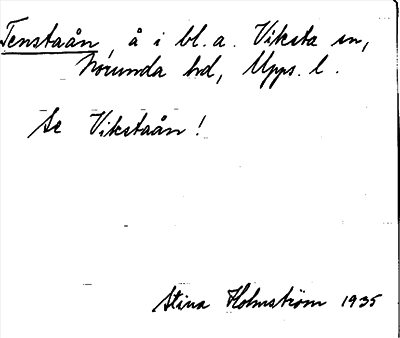 Tenstaån, å i bl. a. Viksta sn,
Norunda hd, Upps. l.
Se Vikstaån!
Stina Holmström 1935